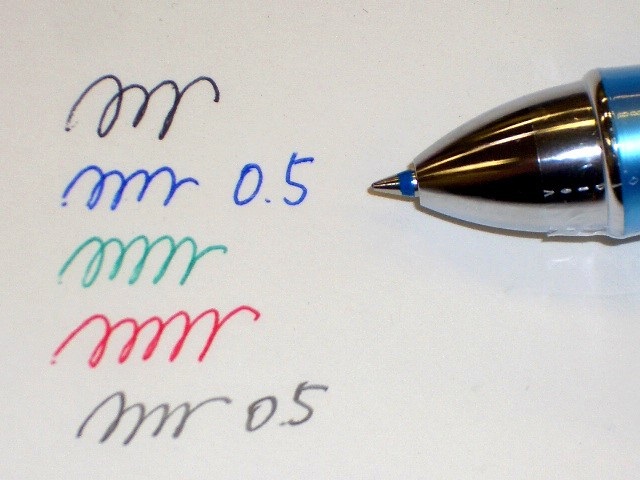 0.5
0.5